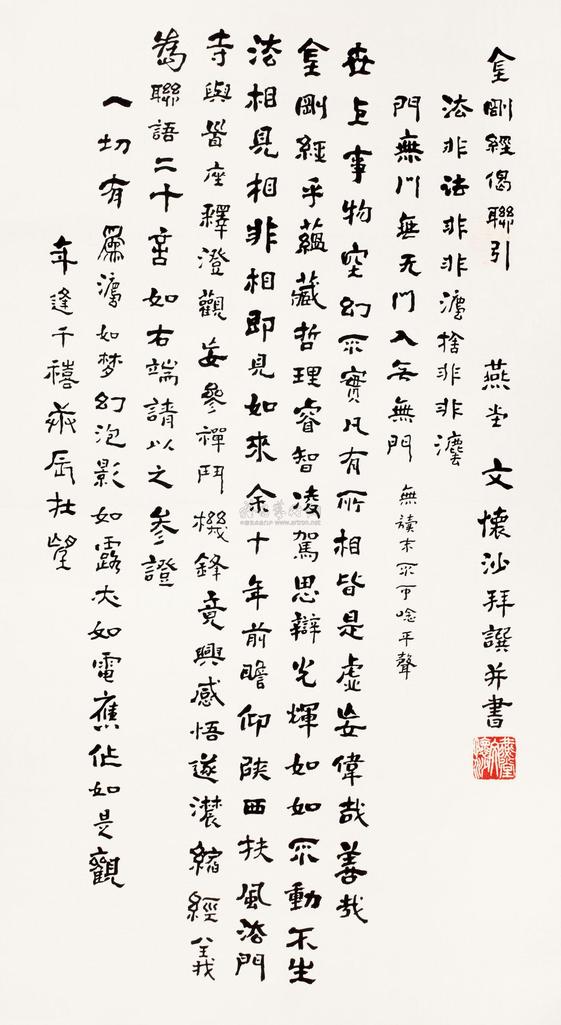 金剛經偈聯引 燕堂 文懷沙拜譔并書
法非法非非灋捨非非灋
門無門無无門入无無門 無讀木不可唸平聲
世上事物空幻不實凡有所相皆是虛妄偉哉善哉
金剛經乎蘊藏哲理睿智凌駕思辯光輝如如不動不生
法相見相非相即見如來余十年前瞻仰陝西扶風法門
寺與晉座釋澄觀妄參禪鬥機鋒竟興感悟遂濃縮經義
為聯語二十言如右端請以之參證
一切有為灋如梦幻泡影如露亦如電應作如是觀
年逢千禧庚辰牡望